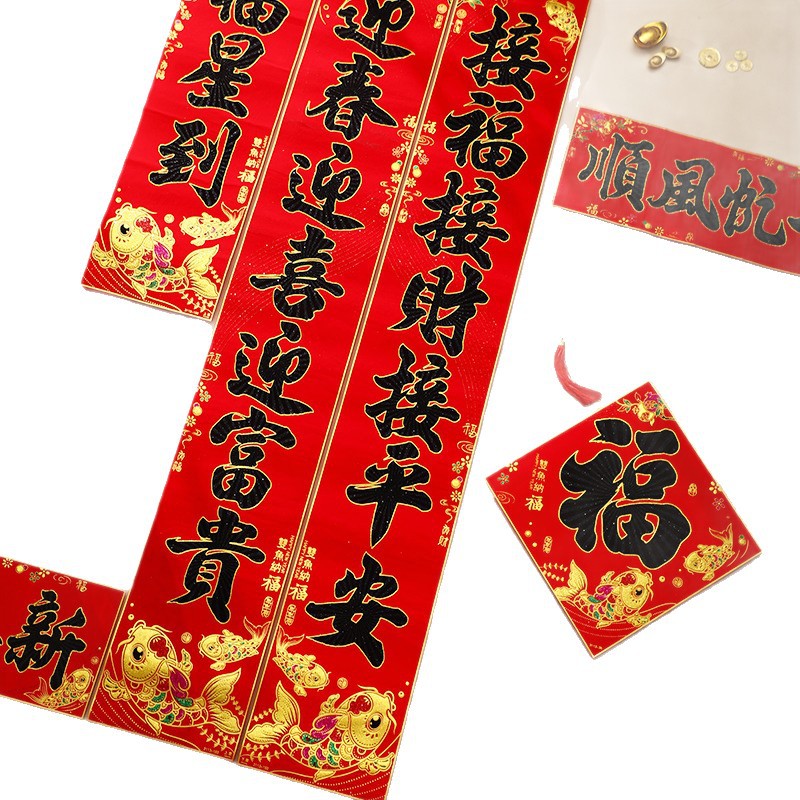 福星到
迎春迎喜迎富貴
接福接財接平安
順風帆
福
新
雙魚納福
雙魚納福
雙魚納福
雙魚納福